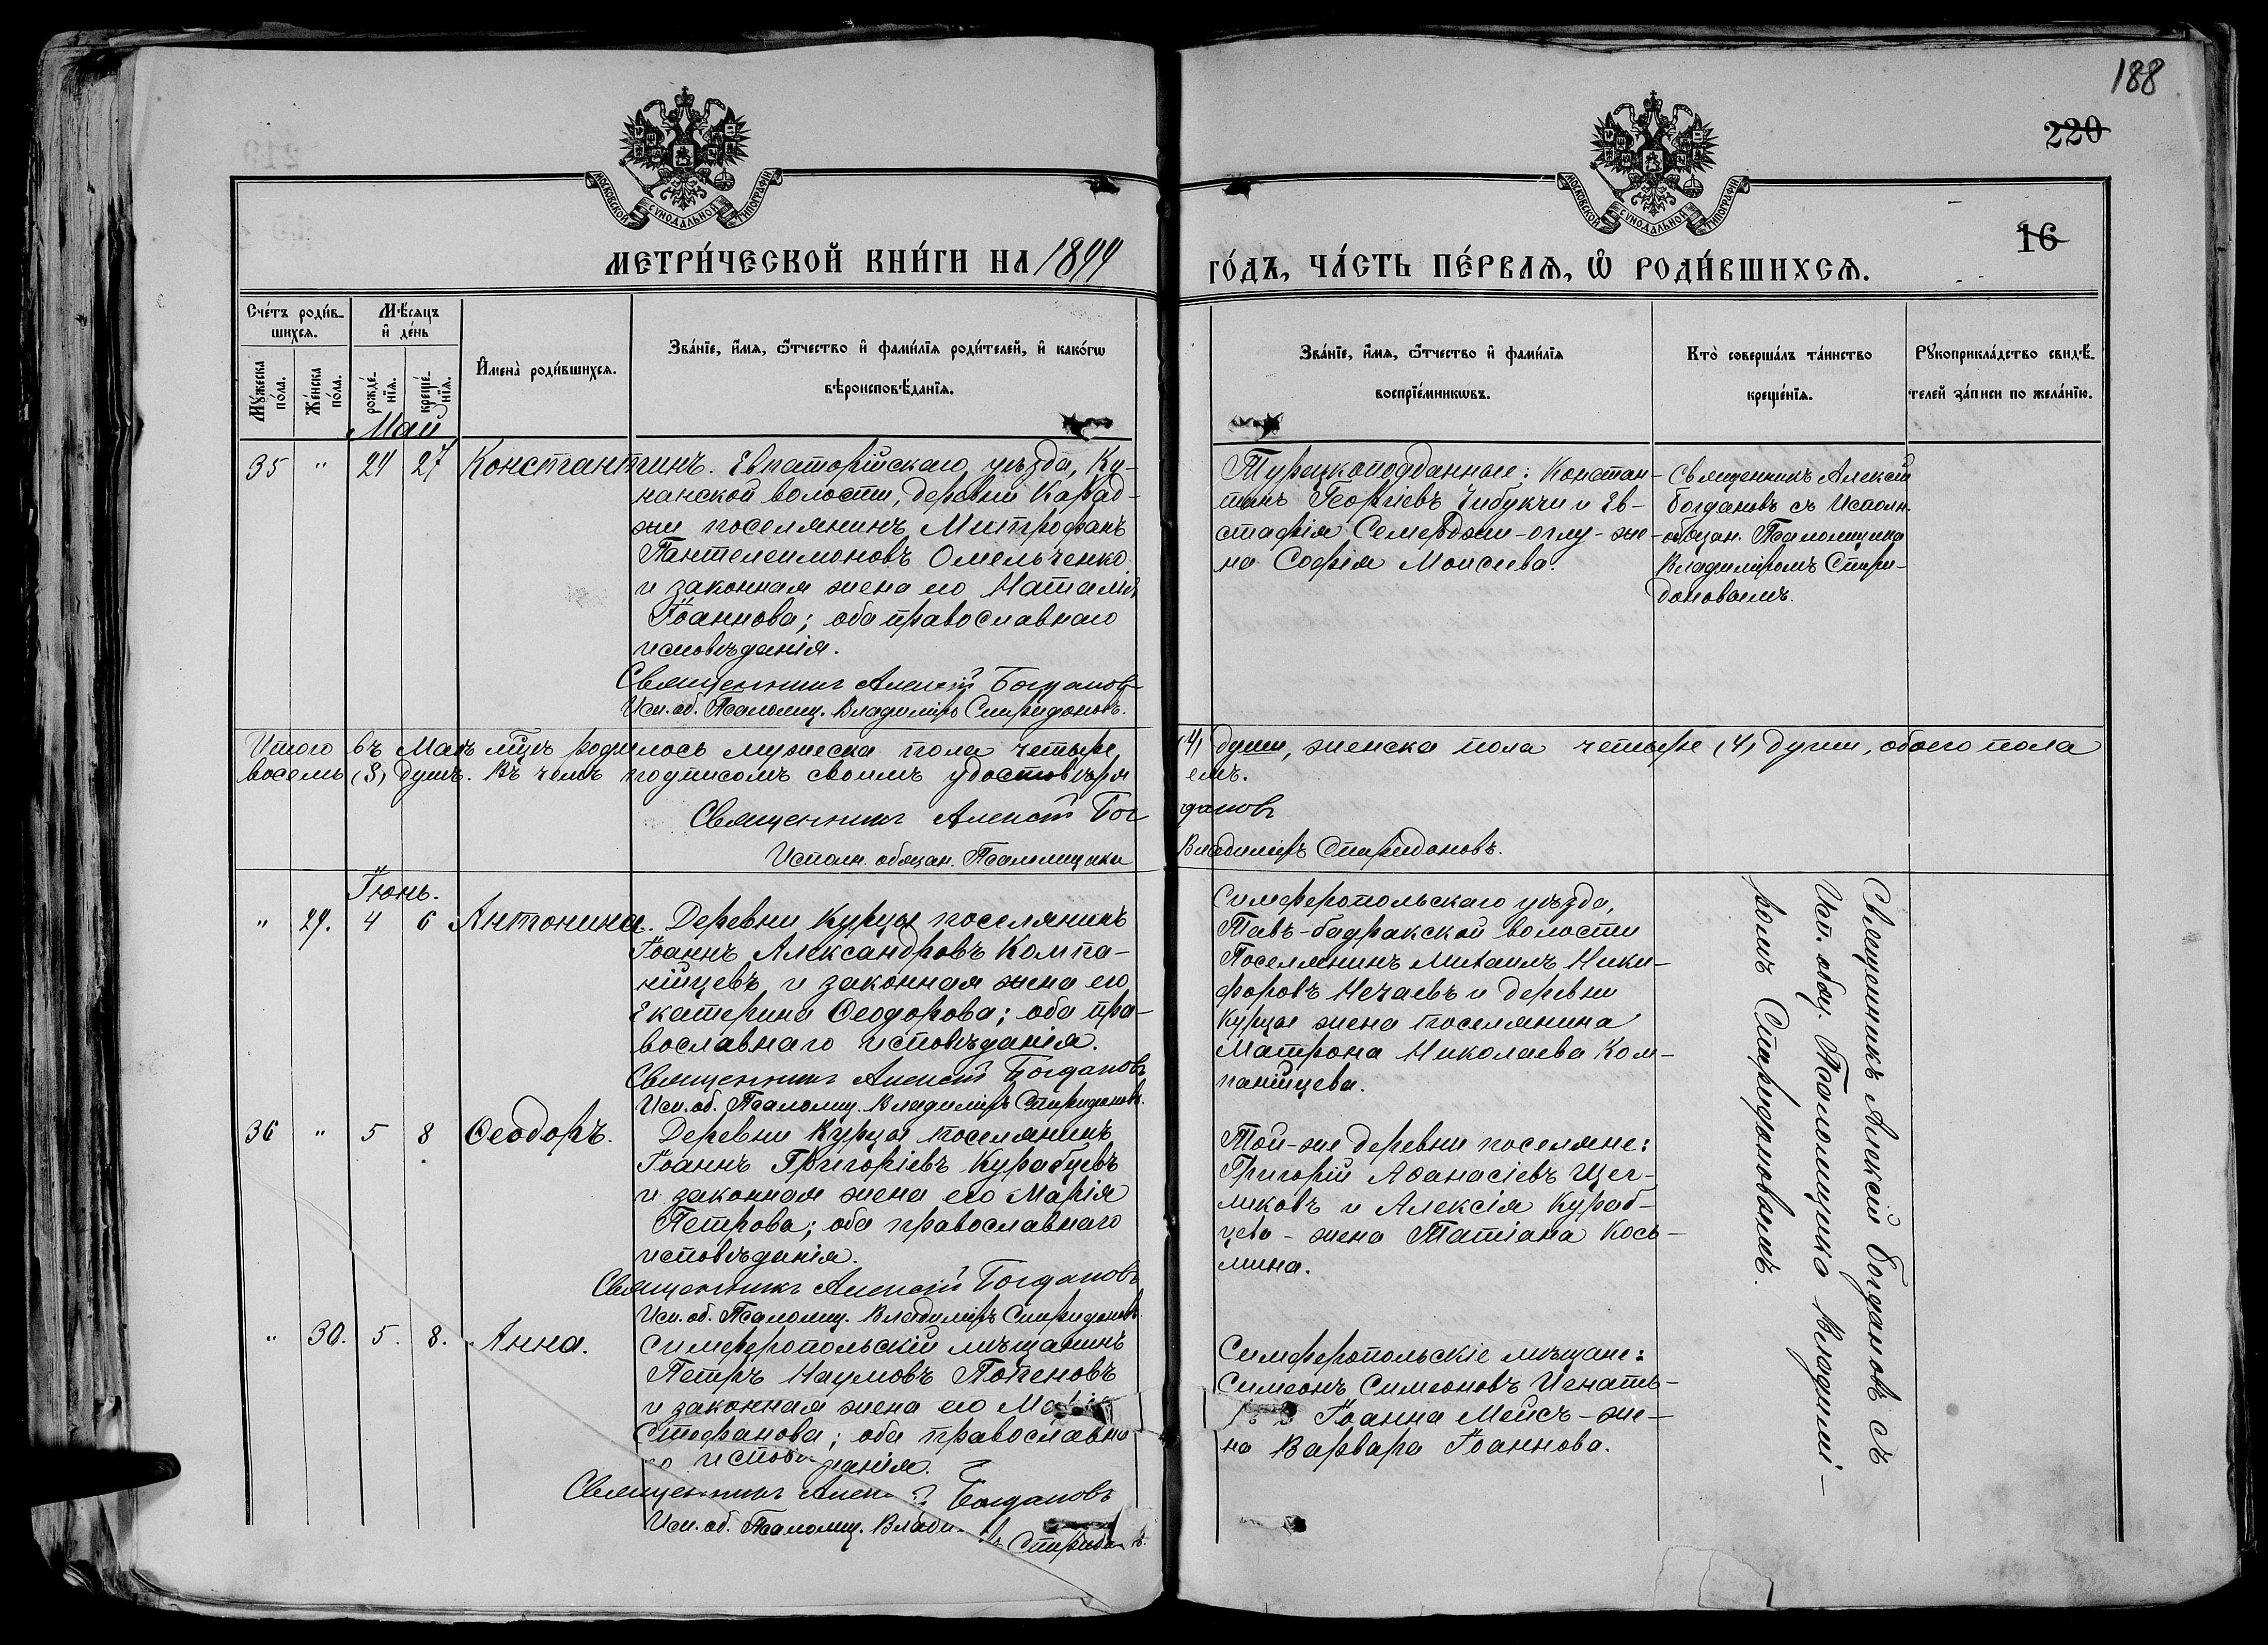 188
220
16
МОСКОВСКОЙ СѴНОДАЛЬНОЙ ТИПОГРАФІИ
МОСКОВСКОЙ СѴНОДАЛЬНОЙ ТИПОГРАФІИ
МЕТРИ́ЧЕСКОЙ КНИ́ГИ НА 1899
ГО́ДЪ, ЧА́СТЬ ПЕ́РВАѦ, Ѡ҆ РОДИ́ВШИХСѦ.
Сче́тъ роди́в-
шихсѧ.
Мѣ́сѧцъ
и҆ де́нь
Мꙋ́жеска
по́ла.
Же́нска
по́ла.
рожде́-
нїѧ.
креще́-
нїѧ.
И҆мена̀ роди́вшихсѧ.
Зва́нїе, и҆́мѧ, ѻ҆́тчество и҆ фами́лїѧ роди́телей, и҆ како́гѡ
вѣроисповѣ́данїѧ.
Зва́нїе, и҆́мѧ, ѻ҆́тчество и҆ фами́лїѧ
воспрїе́мникѡвъ.
Кто̀ соверша́лъ та́инство
креще́нїѧ.
Рꙋкоприкла́дство свидѣ́-
телей за́писи по жела́нїю.
Май
35 " 24 27 Константинъ. Евпаторійскаго уѣзда, Ку-
нанской волости, деревни Карад-
жи поселянинъ Митрофанъ
Пантелеимоновъ Омельченко
и законная жена его Наталія
Іоаннова; оба православнаго
исповѣданія.
Священникъ Алексій Богдановъ
Исп. об. Псаломщ. Владиміръ Спиридоновъ.
Турецкоподданные: Констан-
тинъ Георгіевъ Чибукчи и Ев-
стафія Семерджи-оглу-же-
на Софія Моисеева.
Священникъ Алексій
Богдановъ съ Исполн.
обязан. Псаломщика
Владиміромъ Спири-
доновымъ.
Итого въ Маѣ мцѣ родилось мужеска пола четыре (4) души, женска пола четыре (4) души, обоего пола
восемь (8) душъ. Въ чемъ подписомъ своимъ удостовѣряемъ.
Священникъ Алексій Богдановъ
Исполн. обязан. Псаломщика Владиміръ Спиридоновъ.
Іюнь.
" 29. 4 6 Антонина. Деревни Курцы поселянинъ
Іоаннъ Александровъ Компа-
нійцевъ и законная жена его
Екатерина Ѳеодорова; оба пра-
вославнаго исповѣданія.
Священникъ Алексій Богдановъ
Исп. об. Псаломщ. Владиміръ Спиридоновъ.
Симферопольскаго уѣзда,
Тавъ-бадракской волости
Поселянинъ Михаилъ Ники-
форовъ Нечаевъ и деревни
Курцы жена поселянина
Матрона Николаева Ком-
панійцева.
Священникъ Алексій Богдановъ съ
Исп. обяз. Псаломщика Владимі-
ромъ Спиридоновымъ.
36 " 5 8 Ѳеодоръ. Деревни Курцы поселянинъ
Іоаннъ Григоріевъ Курабцевъ
и законная жена его Марія
Петрова; оба православнаго
исповѣданія.
Священникъ Алексій Богдановъ
Исп. об. Псаломщ. Владиміръ Спиридоновъ.
Той-же деревни поселяне:
Григорій Аѳанасіевъ Щег-
ликовъ и Алексія Кураб-
цева - жена Татіана Кось-
мина.
" 30. 5. 8. Анна. Симферопольскій мѣщанинъ
Петръ Наумовъ Попеновъ
и законная жена его
Стефанова; оба православна
го исповѣданія.
Священникъ Алексій Богдановъ
Исп. об. Псаломщ. Спиридоновъ.
Симферопольскіе мѣщане:
Симеонъ Симеоновъ Игнать-
Іоанна Мейсъ-же-
на Варвара Іоаннова.